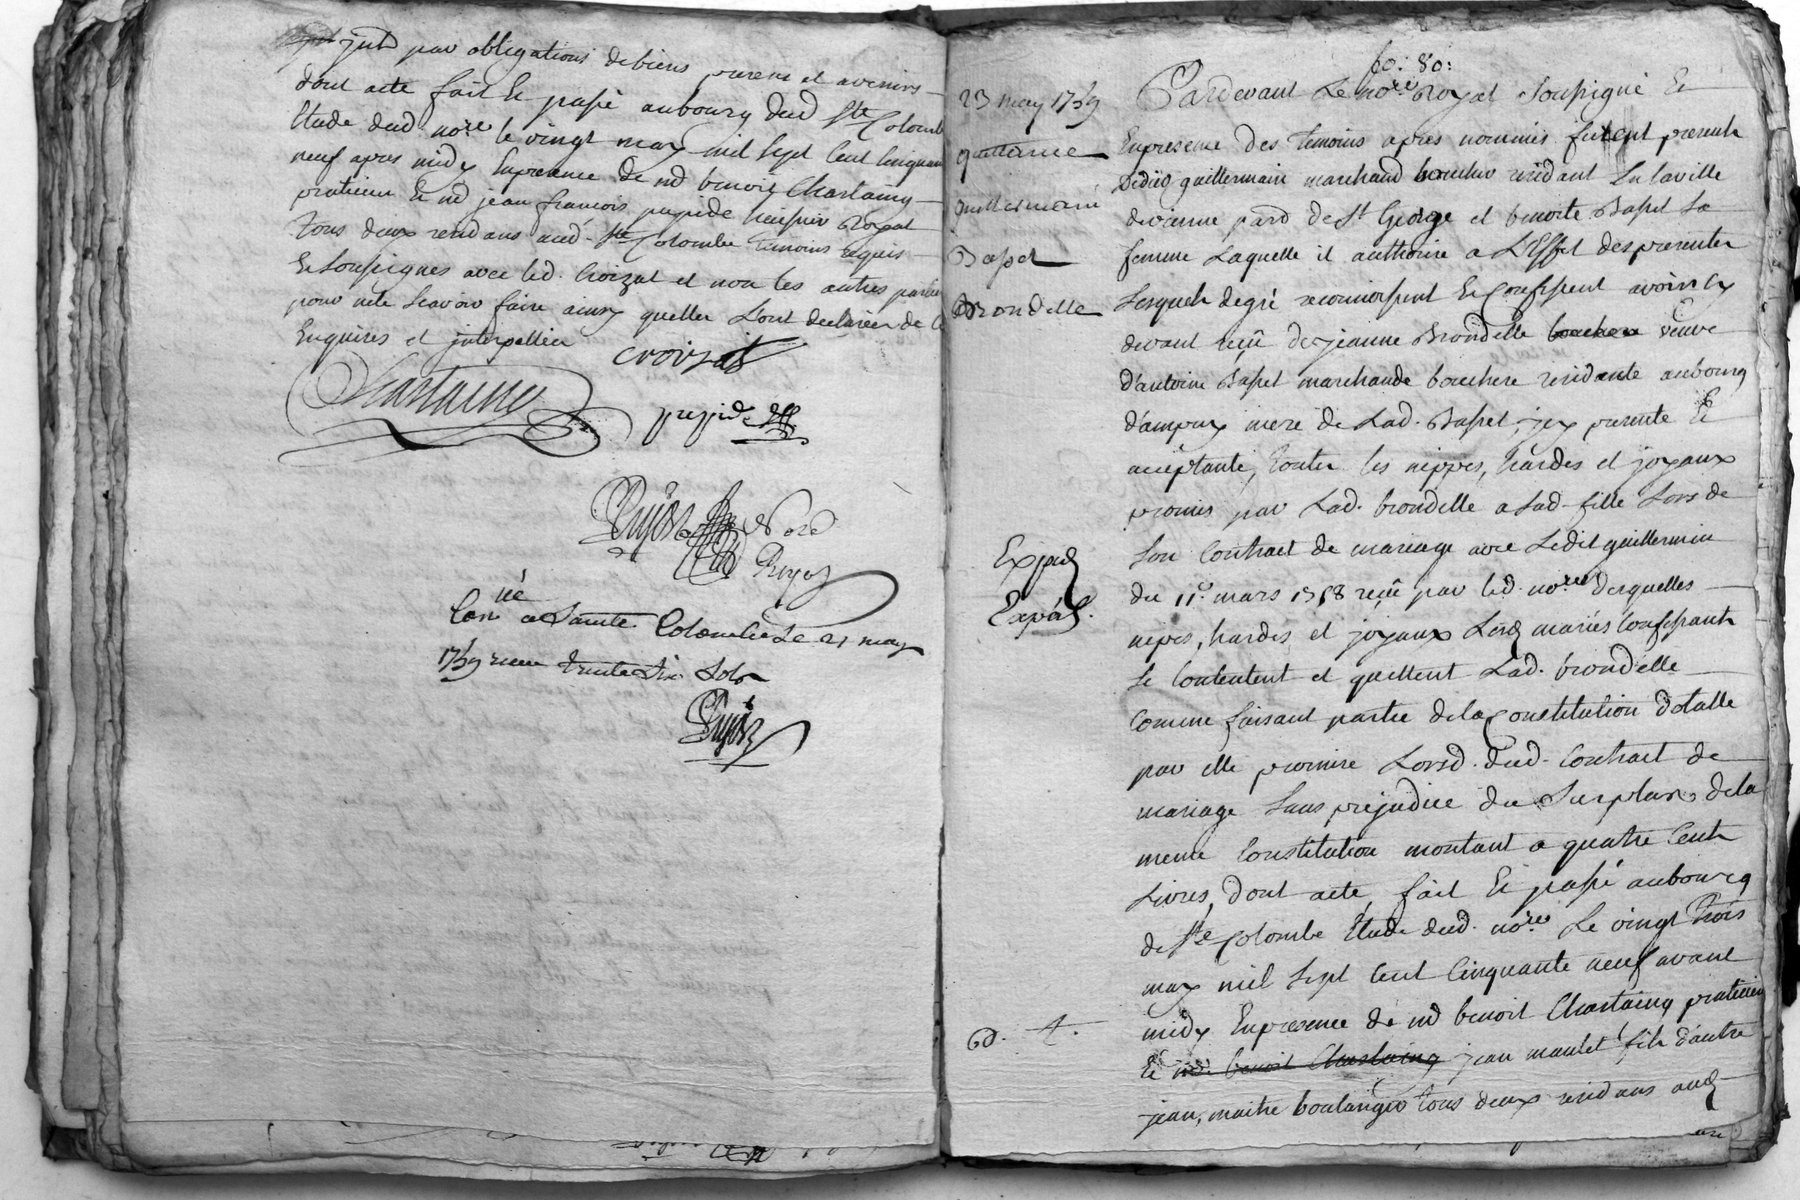 par obligations de biens presens et avenirs
dont acte fait Et passé aubourg dud Ste Colombe
Etude dud. nore le vingt may mil sept Cent Cinquante
neuf apres midy Enpresence de md benoit Chastaing
praticien Et md jean francois huissier Royal
tous deux residans aud. Ste Colombe temoins requis
Et soussignes avec led. Croizat et non les autres parties
pour ne le scavoir faire ainsy quelles Sont declarées de Ce
Enquises et interpellées
croizat
Chastaing
Pujos
Nore
Royal
Con né a Sainte Colombe Le 21 may
1759 recu trente six sols
Pujos
fo: 80:
23 may 1759
quittance
guillermain
Basset
Brondelle
Expéd
Expéd.
Pardevant Le nore Royal soussigné Et
Enpresence des temoins apres nommés furent presents
Didier guillermain marchand boucher residant En laville
devienne paroisse de St George et benoite Basset sa
femme Laquelle il authorise a L'Effet des presentes
Lesquels degré reconnoissent Et Confessent avoir Cy
devant reçû de jeanne Brondelle bouchere veuve
d'antoine Basset marchande bouchere residante aubourg
d'ampuy mere de Lad. Basset, jcy presente Et
acceptante, toutes les nippes, hardes et joyaux
promis par Lad. brondelle a Lad. fille Lors de
Son Contract de mariage avec Ledit guillermin
du 11e mars 1758 reçû par led. nore desquelles
nipes, hardes, et joyaux Lesd mariés Confessants
se Contentent et quittent Lad. brondelle
Comme faisant partie dela Constitution dotalle
par elle promise Lorsd. dud. Contract de
mariage Sans prejudice du Surplus dela
meme Constitution montant a quatre Cents
Livres, dont acte, fait Et passé aubourg
de Ste Colombe Etude dud. nore Le vingt trois
may mil sept Cent Cinquante neuf avant
midy Enpresence de md benoit Chastaing praticien
Et md benoit Chastaing jean moulet fils d'autre
jean, maitre boulanger tous deux residans aud